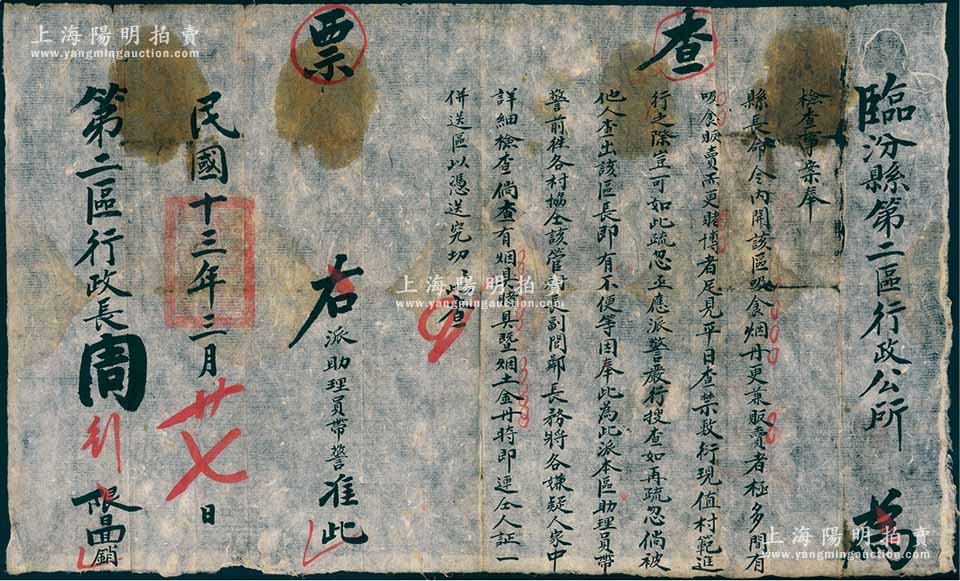 臨汾縣第二區行政公所 為
檢查事案奉
縣長命令內開該區吸食烟丹更兼販賣者極多間有
吸食販賣而更賭博者足見平日查禁敷衍現值村範進
行之際豈可如此疏忽亟應派警嚴行搜查如再疏忽倘被
他人查出該區長即有不便等因奉此為此派本區助理員帶
警前往各村協仝該管村長副閭鄰長務將各嫌疑人家中
詳細檢查倘查有烟具賭具暨烟土金丹時即連仝人証一
併送區以憑送究切
查票
右派助理員帶警准此
民國十三年三月廿七日
第二區行政長周
限 銷
上海陽明拍賣
www.yangmingauction.com
上海陽明拍賣
www.yangmingauction.com
上海陽明拍賣
www.yangmingauction.com
上海陽明拍賣
www.yangmingauction.com
上海陽明拍賣
www.yangmingauction.com